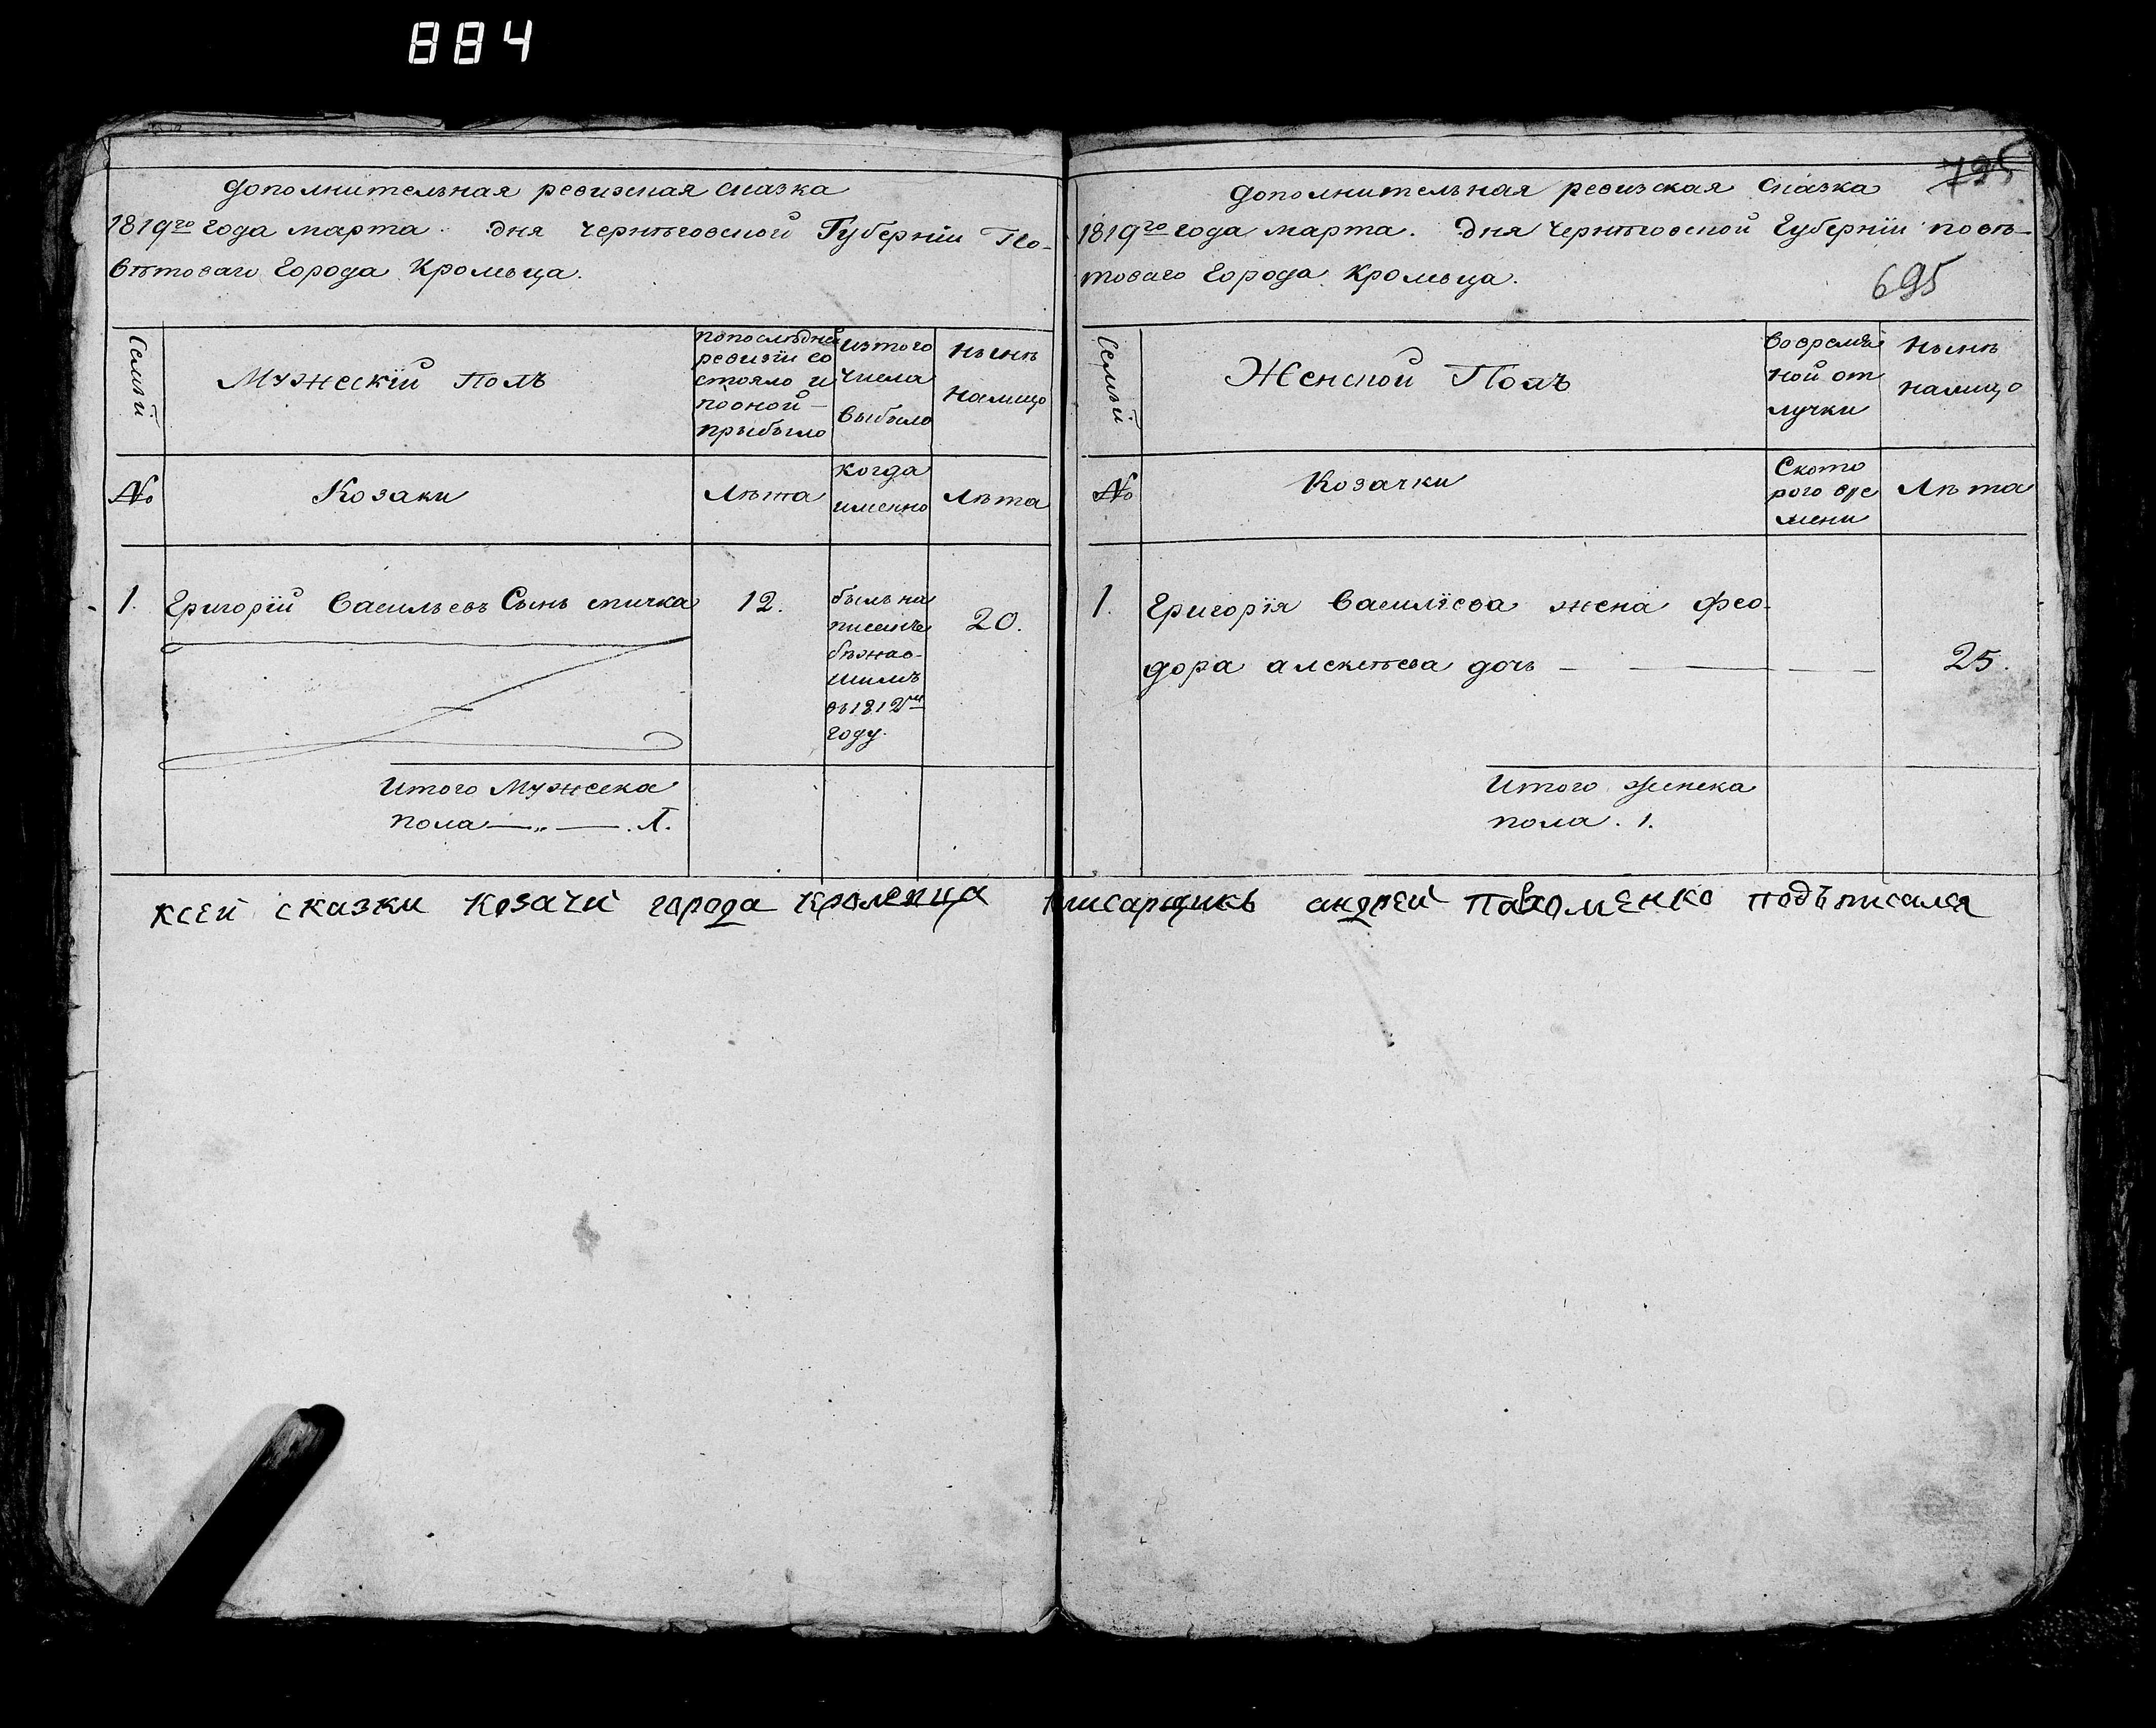 884
Дополнительная ревизская сказка
1819го года марта. Дня Черниговской Губернїи По-
вѣтоваго Города Кролевца.
Семьи
Мужескїй Полъ
попослѣдней
ревизїи со
стояло и
посной—
прыбыло
изтого
числа
выбыло
нынѣ
налицо
№
Козаки
Лѣта
когда
именно
Лѣта
1. Григорїй Васильевъ Сынъ спичка 12.
былъ на
писанъ
бѣжав-
шимъ
въ 1812м
году.
20.
Итого Мужеска
пола — „ — .1.
795
Дополнительная ревизская сказка
1819го года марта. Дня Черниговской Губернїи повѣ-
товаго Города Кролевца.
695
Семьи
Женской Полъ
вовремян
ной от
лучки
нынѣ
налицо
№
Козачки
Ското
рого вре
мени
Лѣта
1. Григорїя Василїева жена Фео-
дора алексѣева дочь — — — 25.
Итого женска
пола. 1.
ксей сказки козачй города кролевца писарщикъ андрей Пахоменко подъписался